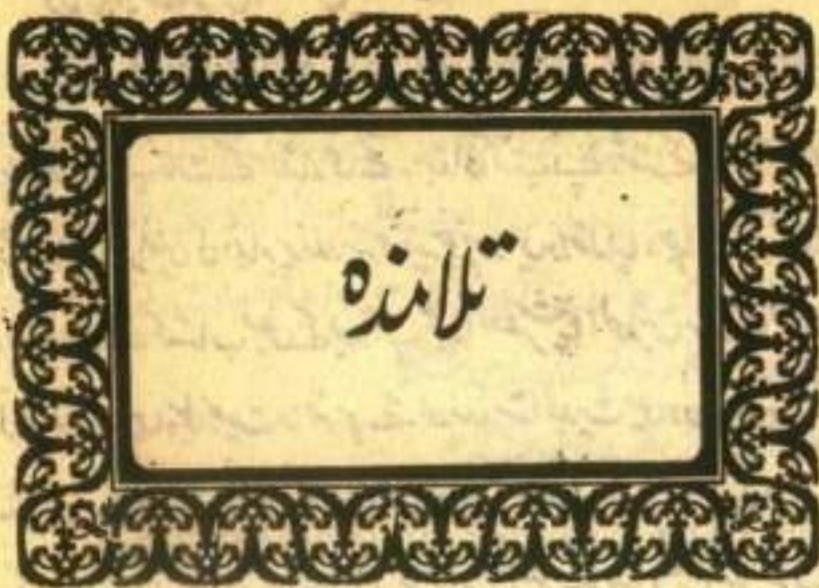 تلامذہ